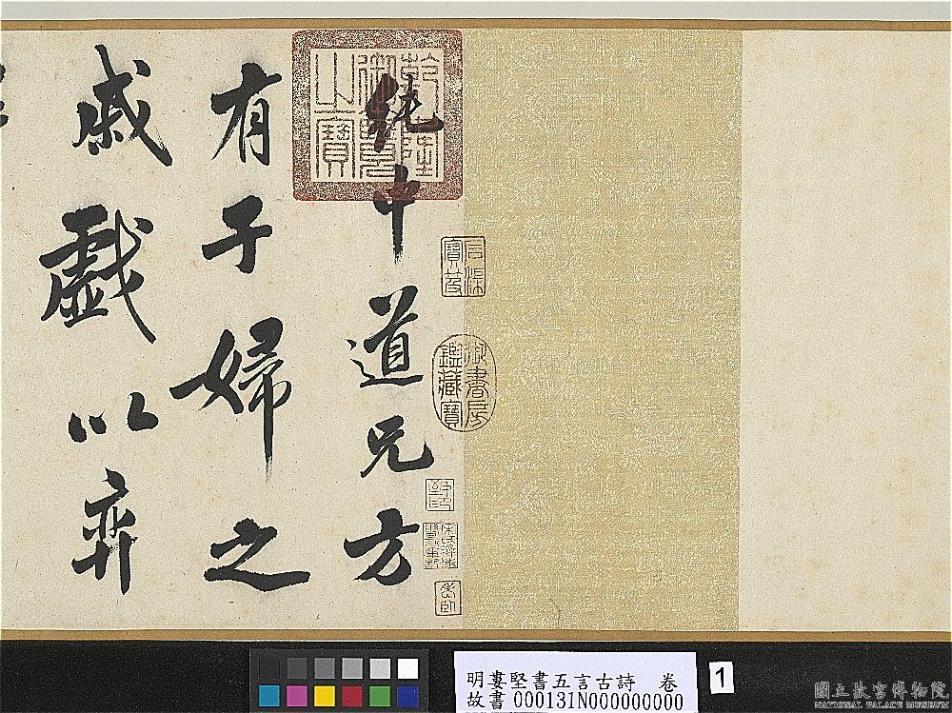 純中道兄方
有子婦之
戚戲以弈
乾隆御覽之寶
石渠寶笈
御書房鑑藏寶
明婁堅書五言古詩　卷
故書 000131N000000000
1
國立故宮博物院
NATIONAL PALACE MUSEUM